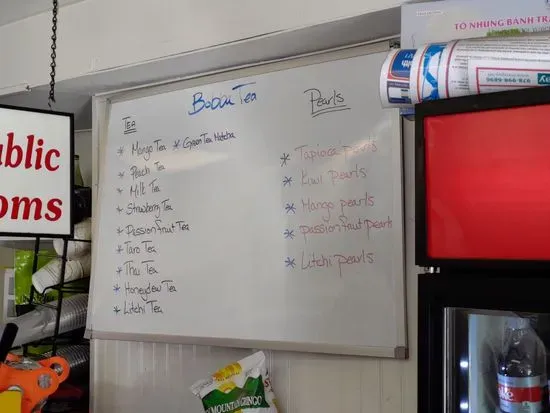 TÔ NHUNG BÁNH TR
978-689-9680
Boba Tea
Tea
* Mango Tea * Green Tea Matcha
* Peach Tea
* Milk Tea
* Strawberry Tea
* Passion Fruit Tea
* Taro Tea
* Thai Tea
* Honeydew Tea
* Litchi Tea
Pearls
* Tapioca pearls
* Kiwi pearls
* Mango pearls
* passion fruit pearls
* Litchi pearls
ublic
oms
MOUNTAIN GRINGO